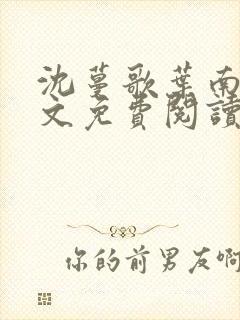 沈蔓歌葉南
文免費閱讀
你的前男友啊